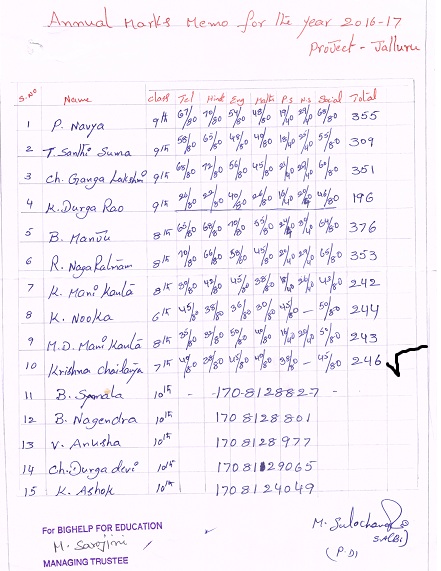 Annual Marks Memo for the year 2016-17
Project - Jalluru
S.No Name class Tel Hindi Eng Maths P.S N.S Social Total
1 P. Navya 9th 67/80 70/80 54/80 48/80 29/40 68/80 355
2 T. Santhi Suma 9th 58/80 65/80 48/80 49/80 18/40 55/80 309
3 Ch. Ganga Lakshmi 9th 68/80 72/80 56/80 45/80 60/80 351
4 K. Durga Rao 9th 40/80 46/80 196
5 B. Manju 8th 65/80 68/80 70/80 55/80 64/80 376
6 R. Naga Ratnam 8th 70/80 66/80 58/80 45/80 353
7 K. Mani Kanta 8th 45/80 38/80 242
8 K. Nooka 6th 45/80 38/80 36/80 30/80 45/80 - 50/80 244
9 M.D. Mani Kanta 8th 50/80 50/80 243
10 Krishna Chaitanya 7th 38/80 45/80 - 45/80 246
11 B. Symala 10th - -1708128827 -
12 B. Nagendra 10th 1708128801
13 V. Anusha 10th 1708128977
14 Ch. Durga devi 10th 1708129065
15 K. Ashok 10th 1708124049
For BIGHELP FOR EDUCATION
M. Sarojini
MANAGING TRUSTEE
M. Sulochana
(P.D)